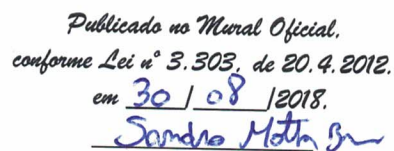 Publicado no Mural Oficial,
conforme Lei nº 3.303, de 20.4.2012.
em 30 / 08 /2018.
Sandro Motta